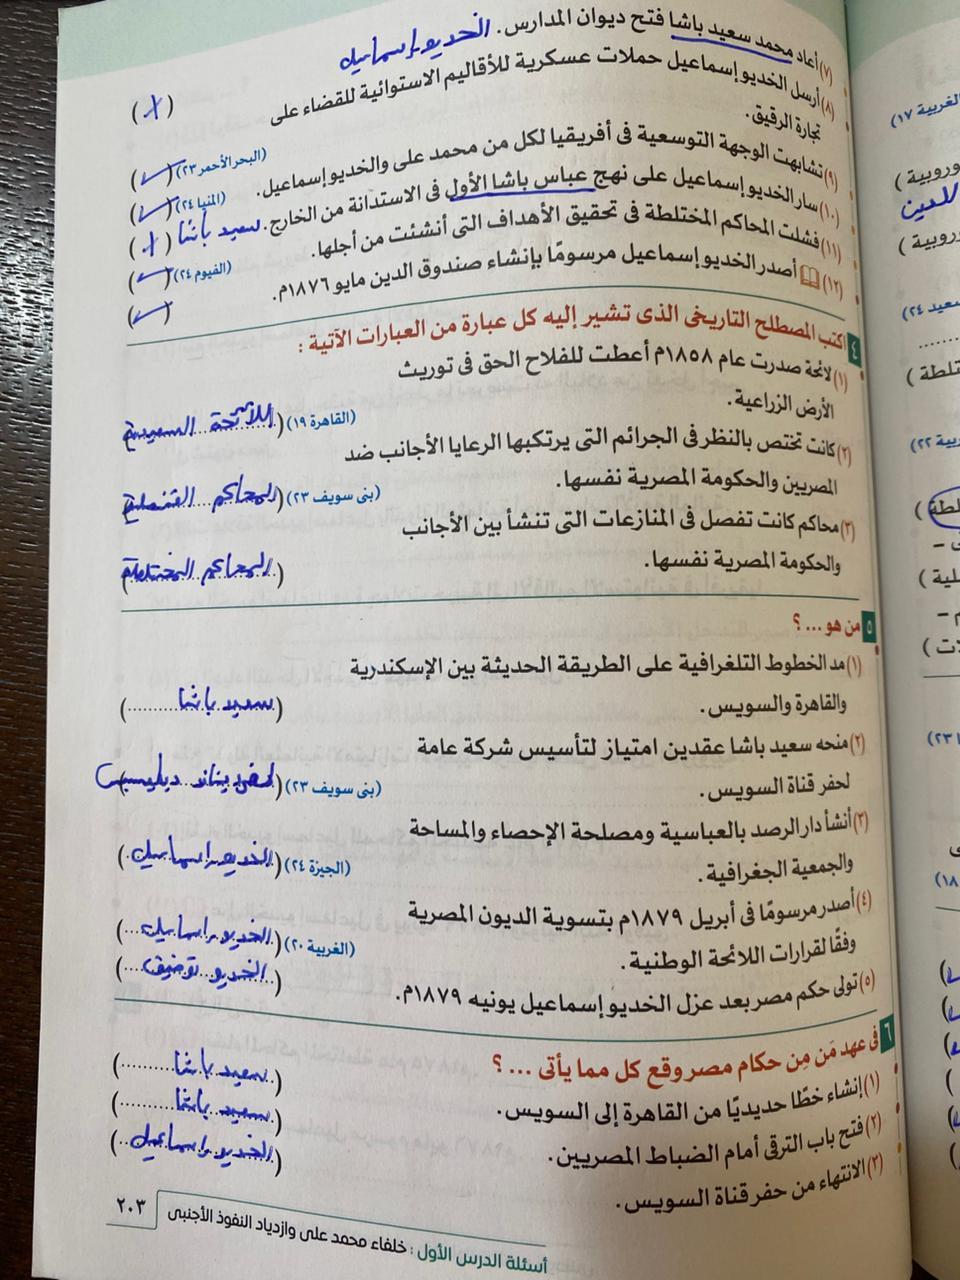 (٧) أعاد محمد سعيد باشا فتح ديوان المدارس. الخديو إسماعيل (X)
(٨) أرسل الخديو إسماعيل حملات عسكرية للأقاليم الاستوائية للقضاء على
تجارة الرقيق. (البحر الأحمر ٢٣) (✓)
(٩) تشابهت الوجهة التوسعية فى أفريقيا لكل من محمد على والخديو إسماعيل. (المنيا ٢٤) (✓)
(١٠) سار الخديو إسماعيل على نهج عباس باشا الأول فى الاستدانة من الخارج. سعيد باشا (X)
(١١) فشلت المحاكم المختلطة فى تحقيق الأهداف التى أنشئت من أجلها. (الفيوم ٢٤) (✓)
(١٢) أصدر الخديو إسماعيل مرسومًا بإنشاء صندوق الدين مايو ١٨٧٦م. (✓)
٤ اكتب المصطلح التاريخى الذى تشير إليه كل عبارة من العبارات الآتية :
(١) لائحة صدرت عام ١٨٥٨م أعطت للفلاح الحق فى توريث
الأرض الزراعية. (القاهرة ١٩) (اللائحة السعيدية)
(٢) كانت تختص بالنظر فى الجرائم التى يرتكبها الرعايا الأجانب ضد
المصريين والحكومة المصرية نفسها. (بنى سويف ٢٣) (المحاكم القنصلية)
(٣) محاكم كانت تفصل فى المنازعات التى تنشأ بين الأجانب
والحكومة المصرية نفسها. (المحاكم المختلطة)
٥ من هو ... ؟
(١) مد الخطوط التلغرافية على الطريقة الحديثة بين الإسكندرية
والقاهرة والسويس. (سعيد باشا)
(٢) منحه سعيد باشا عقدين امتياز لتأسيس شركة عامة
لحفر قناة السويس. (بنى سويف ٢٣) (فرديناند ديليسبس)
(٣) أنشأ دار الرصد بالعباسية ومصلحة الإحصاء والمساحة
والجمعية الجغرافية. (الجيزة ٢٤) (الخديو إسماعيل)
(٤) أصدر مرسومًا فى أبريل ١٨٧٩م بتسوية الديون المصرية
وفقًا لقرارات اللائحة الوطنية. (الغربية ٢٠) (الخديو إسماعيل)
(٥) تولى حكم مصر بعد عزل الخديو إسماعيل يونيه ١٨٧٩م. (الخديو توفيق)
٦ فى عهد مَن مِن حكام مصر وقع كل مما يأتى ... ؟
(١) إنشاء خطًا حديديًا من القاهرة إلى السويس. (سعيد باشا)
(٢) فتح باب الترقى أمام الضباط المصريين. (سعيد باشا)
(٣) الانتهاء من حفر قناة السويس. (الخديو إسماعيل)
أسئلة الدرس الأول : خلفاء محمد على وازدياد النفوذ الأجنبى ٢٠٣